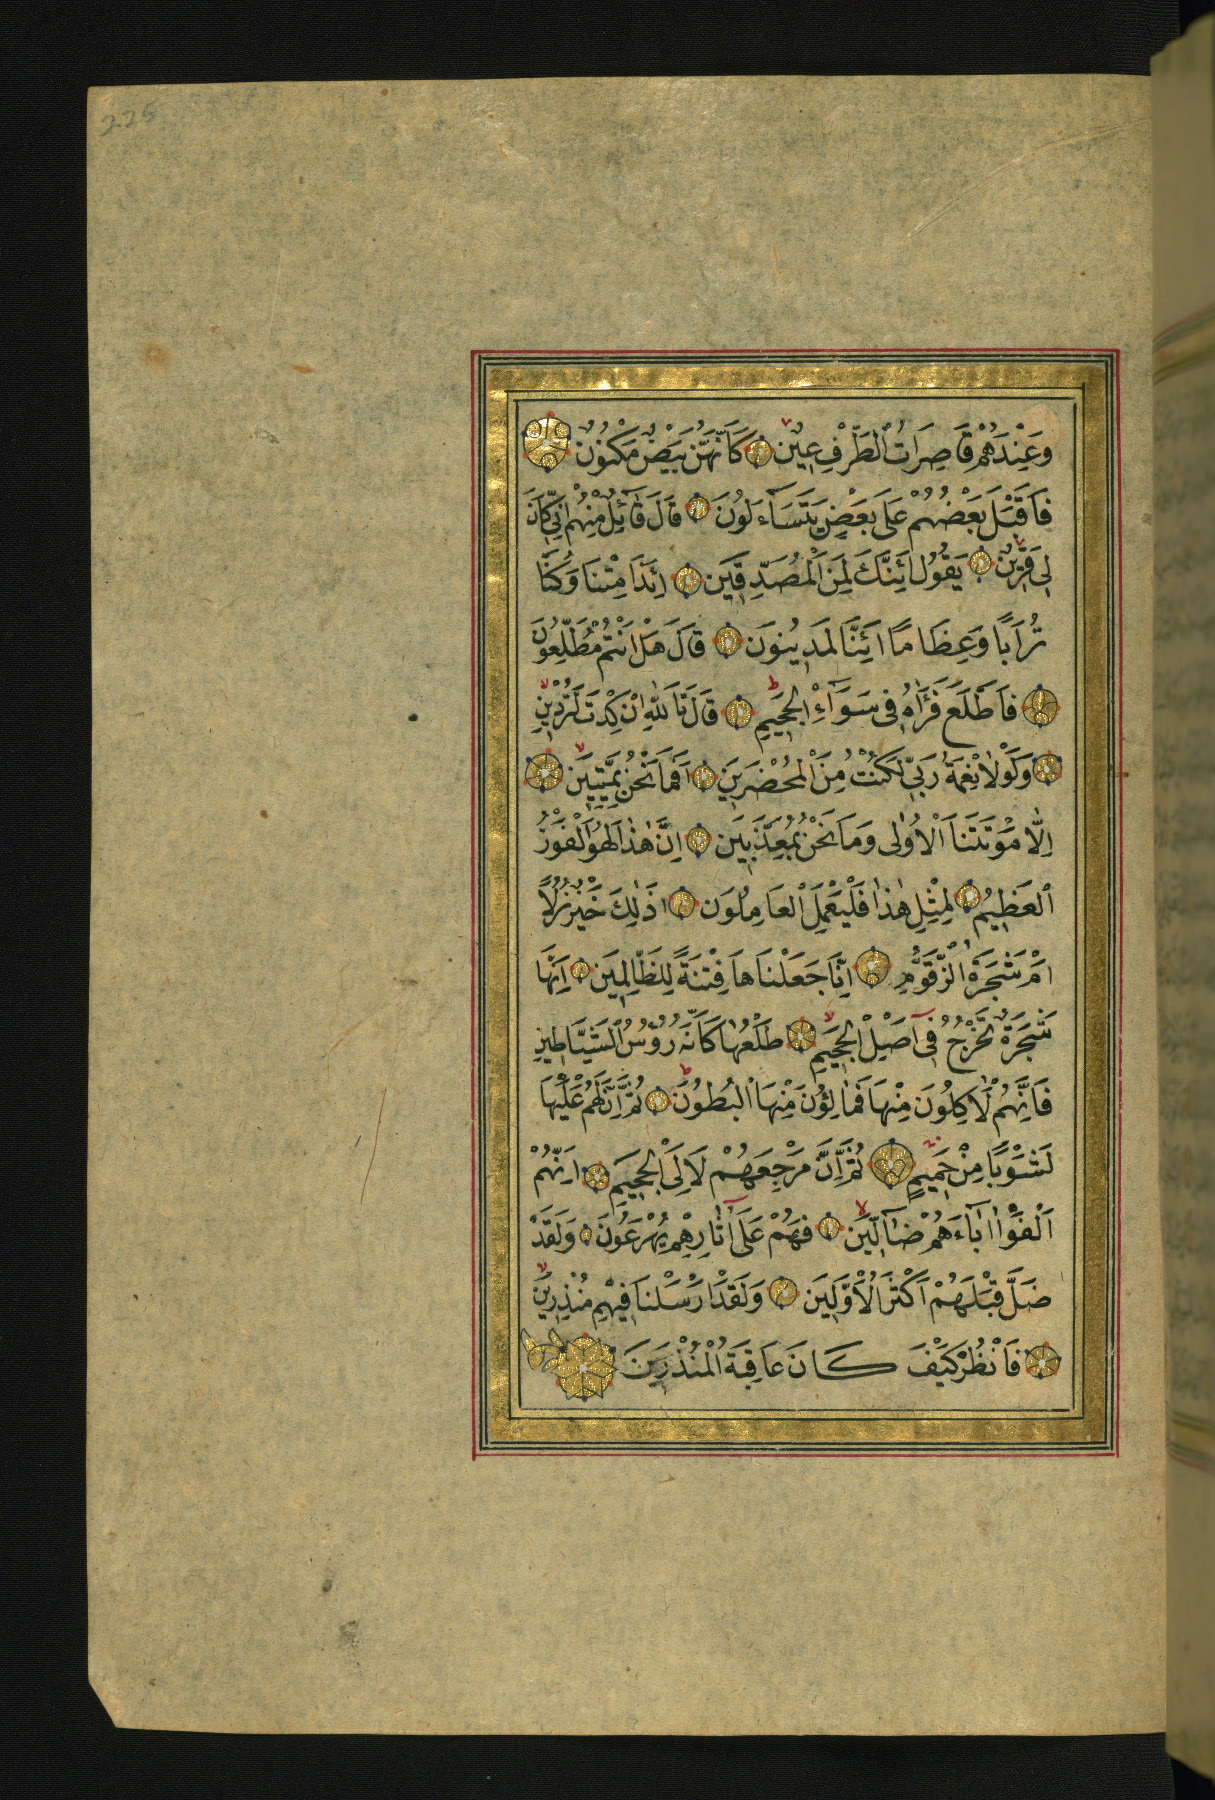 225
وَعِنْدَهُمْ قَاصِرَاتُ الطَّرْفِ عِينٌ كَاَنَّهُنَّ بَيْضٌ مَكْنُونٌ
فَاَقْبَلَ بَعْضُهُمْ عَلَى بَعْضٍ يَتَسَآءَلُونَ قَالَ قَآئِلٌ مِنْهُمْ اِنِّي كَانَ
لِي قَرِينٌ يَقُولُ اَئِنَّكَ لَمِنَ الْمُصَدِّقِينَ اَئِذَا مِتْنَا وَكُنَّا
تُرَابًا وَعِظَامًا اَئِنَّا لَمَدِينُونَ قَالَ هَلْ اَنْتُمْ مُطَّلِعُونَ
فَاطَّلَعَ فَرَاٰهُ فِي سَوَآءِ الْجَحِيمِ قَالَ تَاللّٰهِ اِنْ كِدْتَ لَتُرْدِينِ
وَلَوْلَا نِعْمَةُ رَبِّي لَكُنْتُ مِنَ الْمُحْضَرِينَ اَفَمَا نَحْنُ بِمَيِّتِينَ
اِلَّا مَوْتَتَنَا الْاُولٰى وَمَا نَحْنُ بِمُعَذَّبِينَ اِنَّ هٰذَا لَهُوَ الْفَوْزُ
الْعَظِيمُ لِمِثْلِ هٰذَا فَلْيَعْمَلِ الْعَامِلُونَ اَذٰلِكَ خَيْرٌ نُزُلًا
اَمْ شَجَرَةُ الزَّقُّومِ اِنَّا جَعَلْنَاهَا فِتْنَةً لِلظَّالِمِينَ اِنَّهَا
شَجَرَةٌ تَخْرُجُ فِي اَصْلِ الْجَحِيمِ طَلْعُهَا كَاَنَّهُ رُؤُسُ الشَّيَاطِينِ
فَاِنَّهُمْ لَاٰكِلُونَ مِنْهَا فَمَالِؤُنَ مِنْهَا الْبُطُونَ ثُمَّ اِنَّ لَهُمْ عَلَيْهَا
لَشَوْبًا مِنْ حَمِيمٍ ثُمَّ اِنَّ مَرْجِعَهُمْ لَاِلَى الْجَحِيمِ اِنَّهُمْ
اَلْفَوْا اٰبَآءَهُمْ ضَآلِّينَ فَهُمْ عَلَى اٰثَارِهِمْ يُهْرَعُونَ وَلَقَدْ
ضَلَّ قَبْلَهُمْ اَكْثَرُ الْاَوَّلِينَ وَلَقَدْ اَرْسَلْنَا فِيهِمْ مُنْذِرِينَ
فَانْظُرْ كَيْفَ كَانَ عَاقِبَةُ الْمُنْذَرِينَ